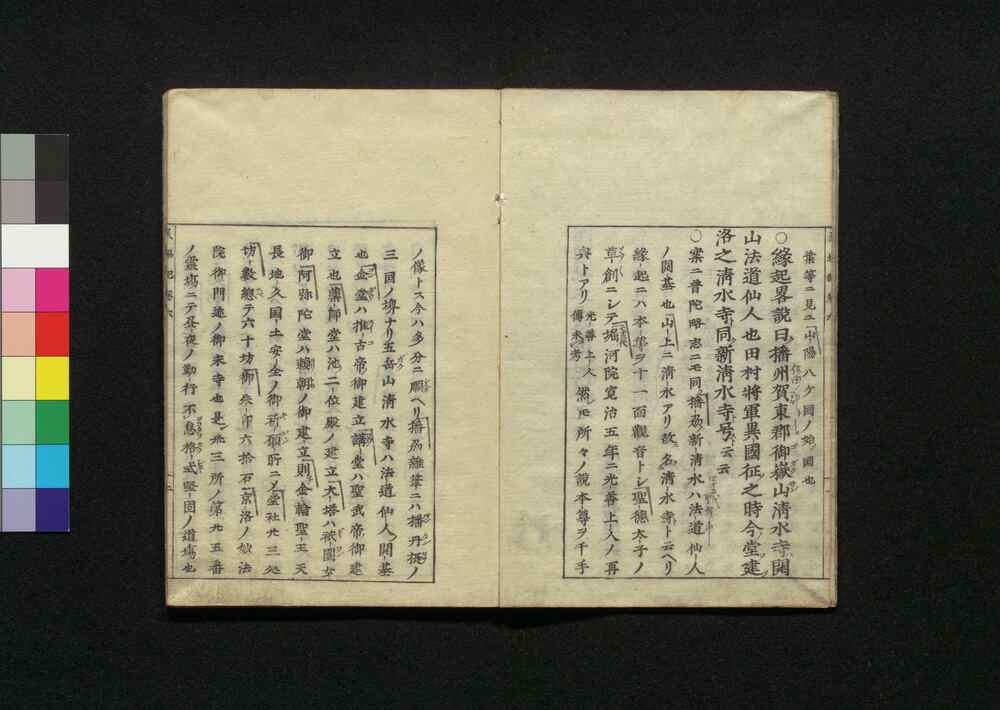 葉等ニ見ユ中陽八ケ國ノ始國也
○縁起畧説曰播州賀東郡御嶽山清水寺開
山法道仙人也田村將軍異國征之時今堂建
洛之清水寺同新清水寺号云云
○案ニ普陀畧志ニモ同播刕新清水ハ法道仙人
ノ開基也山上ニ清水アリ故名清水寺ト云ヘリ
縁起ニハ本尊ヲ十一面觀音トシ聖德太子ノ
草創ニシテ堀河院寛治五年ニ光善上人ノ再
興トアリ光善上人傳未考然レモ所々ノ説本尊ヲ千手
ノ像トス今ハ多分ニ順ヘリ播刕雜筆ニハ播丹摂ノ
三國ノ堺ナリ五岳山清水寺ハ法道仙人開基
也金堂ハ推古帝御建立講堂ハ聖武帝御建
立也藥師堂ハ池二位殿ノ建立大塔ハ祇園女
御阿弥陀堂ハ頼朝ノ御建立則金輪聖王天
長地久國土安全ノ御祈願所ニメ靈社廿三処
坊數總テ六十坊御朱印六拾石京洛ノ妙法
院御門跡ノ御末寺也是卅三所ノ第廿五番
ノ靈塲ニテ昼夜ノ勤行不息格式堅固ノ道塲也